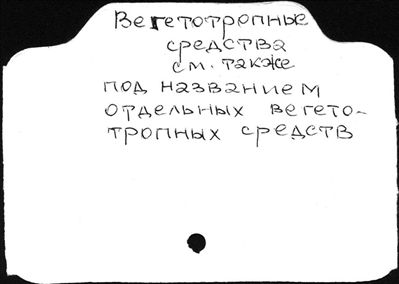 Вегетотропные
средства
см. также
под названием
отдельных вегето-
тропных средств